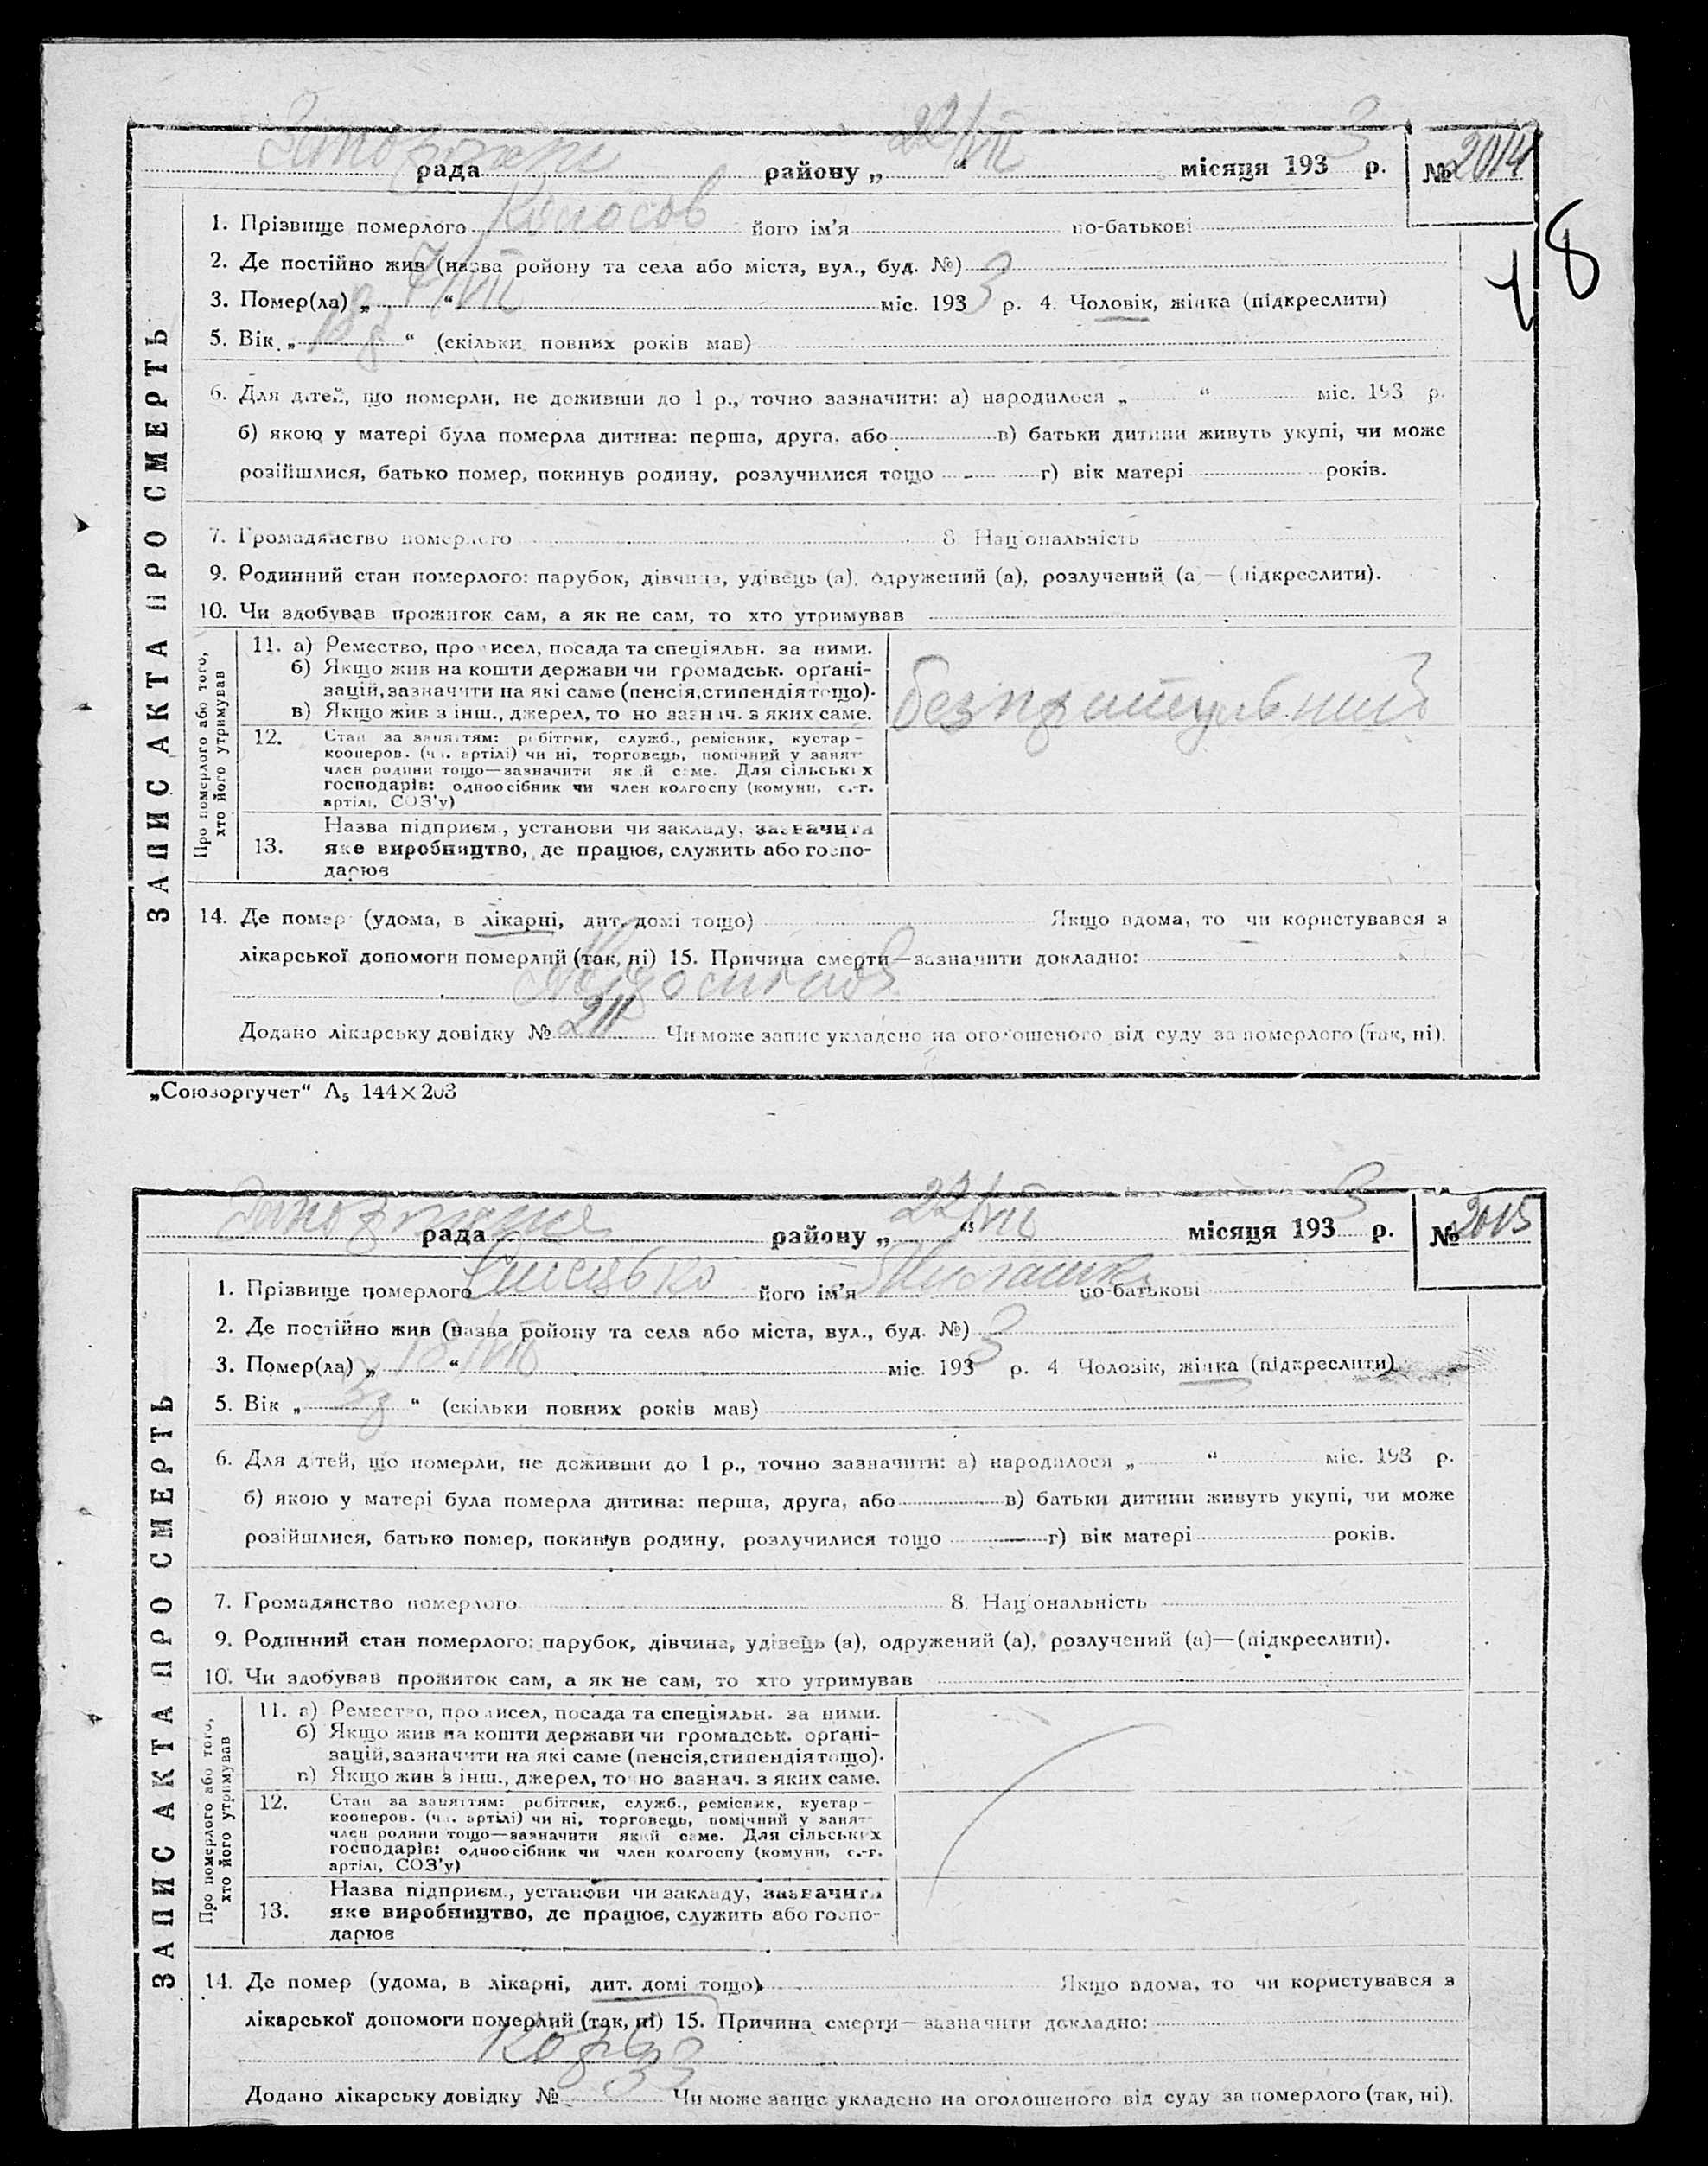 22/VII 3
рада району „ “ місяця 193 р. № 2014
1. Прізвище померлого його ім'я по-батькові
48
2. Де постійно жив (назва ройону та села або міста, вул., буд. №)
3. Помер(ла) „ 7/VII “ міс. 193 3 р. 4. Чоловік, жінка (підкреслити)
5. Вік „ “ (скільки повних років мав)
6. Для дітей, що померли, не доживши до 1 р., точно зазначити: а) народилося „ “ міс. 193 р.
б) якою у матері була померла дитина: перша, друга, або в) батьки дитини живуть укупі, чи може
розійшлися, батько помер, покинув родину, розлучилися тощо г) вік матері років.
7. Громадянство померлого 8. Національність
9. Родинний стан померлого: парубок, дівчина, удівець (а), одружений (а), розлучений (а)—(підкреслити).
10. Чи здобував прожиток сам, а як не сам, то хто утримував
ЗАПИС АКТА ПРО СМЕРТЬ
Про померлого або того, хто його утримував
11. а) Ремество, промисел, посада та спеціяльн. за ними.
б) Якщо жив на кошти держави чи громадськ. орґані-
зацій, зазначити на які саме (пенсія, стипендія тощо).
в) Якщо жив з інш., джерел, точно зазнач. з яких саме.
12. Стан за заняттям: робітник, служб., ремісник, кустар—
кооперов. (чл. артілі) чи ні, торговець, помічний у занят—
член родини тощо—зазначити який саме. Для сільських
господарів: одноосібник чи член колгоспу (комуни, с.-г.
артілі, СОЗ'у)
13. Назва підприєм., установи чи закладу, зазначити
яке виробництво, де працює, служить або госпо-
дарює
14. Де помер (удома, в лікарні, дит. домі тощо) Якщо вдома, то чи користувався з
лікарської допомоги померлий (так, ні) 15. Причина смерти—зазначити докладно:
Додано лікарську довідку № Чи може запис укладено на оголошеного від суду за померлого (так, ні).
„Союзоргучет“ А₅ 144×203
22/VII 3
рада району „ “ місяця 193 р. № 2015
1. Прізвище померлого його ім'я по-батькові
2. Де постійно жив (назва ройону та села або міста, вул., буд. №)
3. Помер(ла) „ 18/VII “ міс. 193 3 р. 4 Чоловік, жінка (підкреслити)
5. Вік „ “ (скільки повних років мав)
6. Для дітей, що померли, не доживши до 1 р., точно зазначити: а) народилося „ “ міс. 193 р.
б) якою у матері була померла дитина: перша, друга, або в) батьки дитини живуть укупі, чи може
розійшлися, батько помер, покинув родину, розлучилися тощо г) вік матері років.
7. Громадянство померлого 8. Національність
9. Родинний стан померлого: парубок, дівчина, удівець (а), одружений (а), розлучений (а)—(підкреслити).
10. Чи здобував прожиток сам, а як не сам, то хто утримував
ЗАПИС АКТА ПРО СМЕРТЬ
Про померлого або того, хто його утримував
11. а) Ремество, промисел, посада та спеціяльн. за ними.
б) Якщо жив на кошти держави чи громадськ. орґані-
зацій, зазначити на які саме (пенсія, стипендія тощо).
в) Якщо жив з інш., джерел, точно зазнач. з яких саме.
12. Стан за заняттям: робітник, служб., ремісник, кустар—
кооперов. (чл. артілі) чи ні, торговець, помічний у занят—
член родини тощо—зазначити який саме. Для сільських
господарів: одноосібник чи член колгоспу (комуни, с.-г.
артілі, СОЗ'у)
13. Назва підприєм., установи чи закладу, зазначити
яке виробництво, де працює, служить або госпо-
дарює
14. Де помер (удома, в лікарні, дит. домі тощо) Якщо вдома, то чи користувався з
лікарської допомоги померлий (так, ні) 15. Причина смерти—зазначити докладно:
Додано лікарську довідку № 33 Чи може запис укладено на оголошеного від суду за померлого (так, ні).